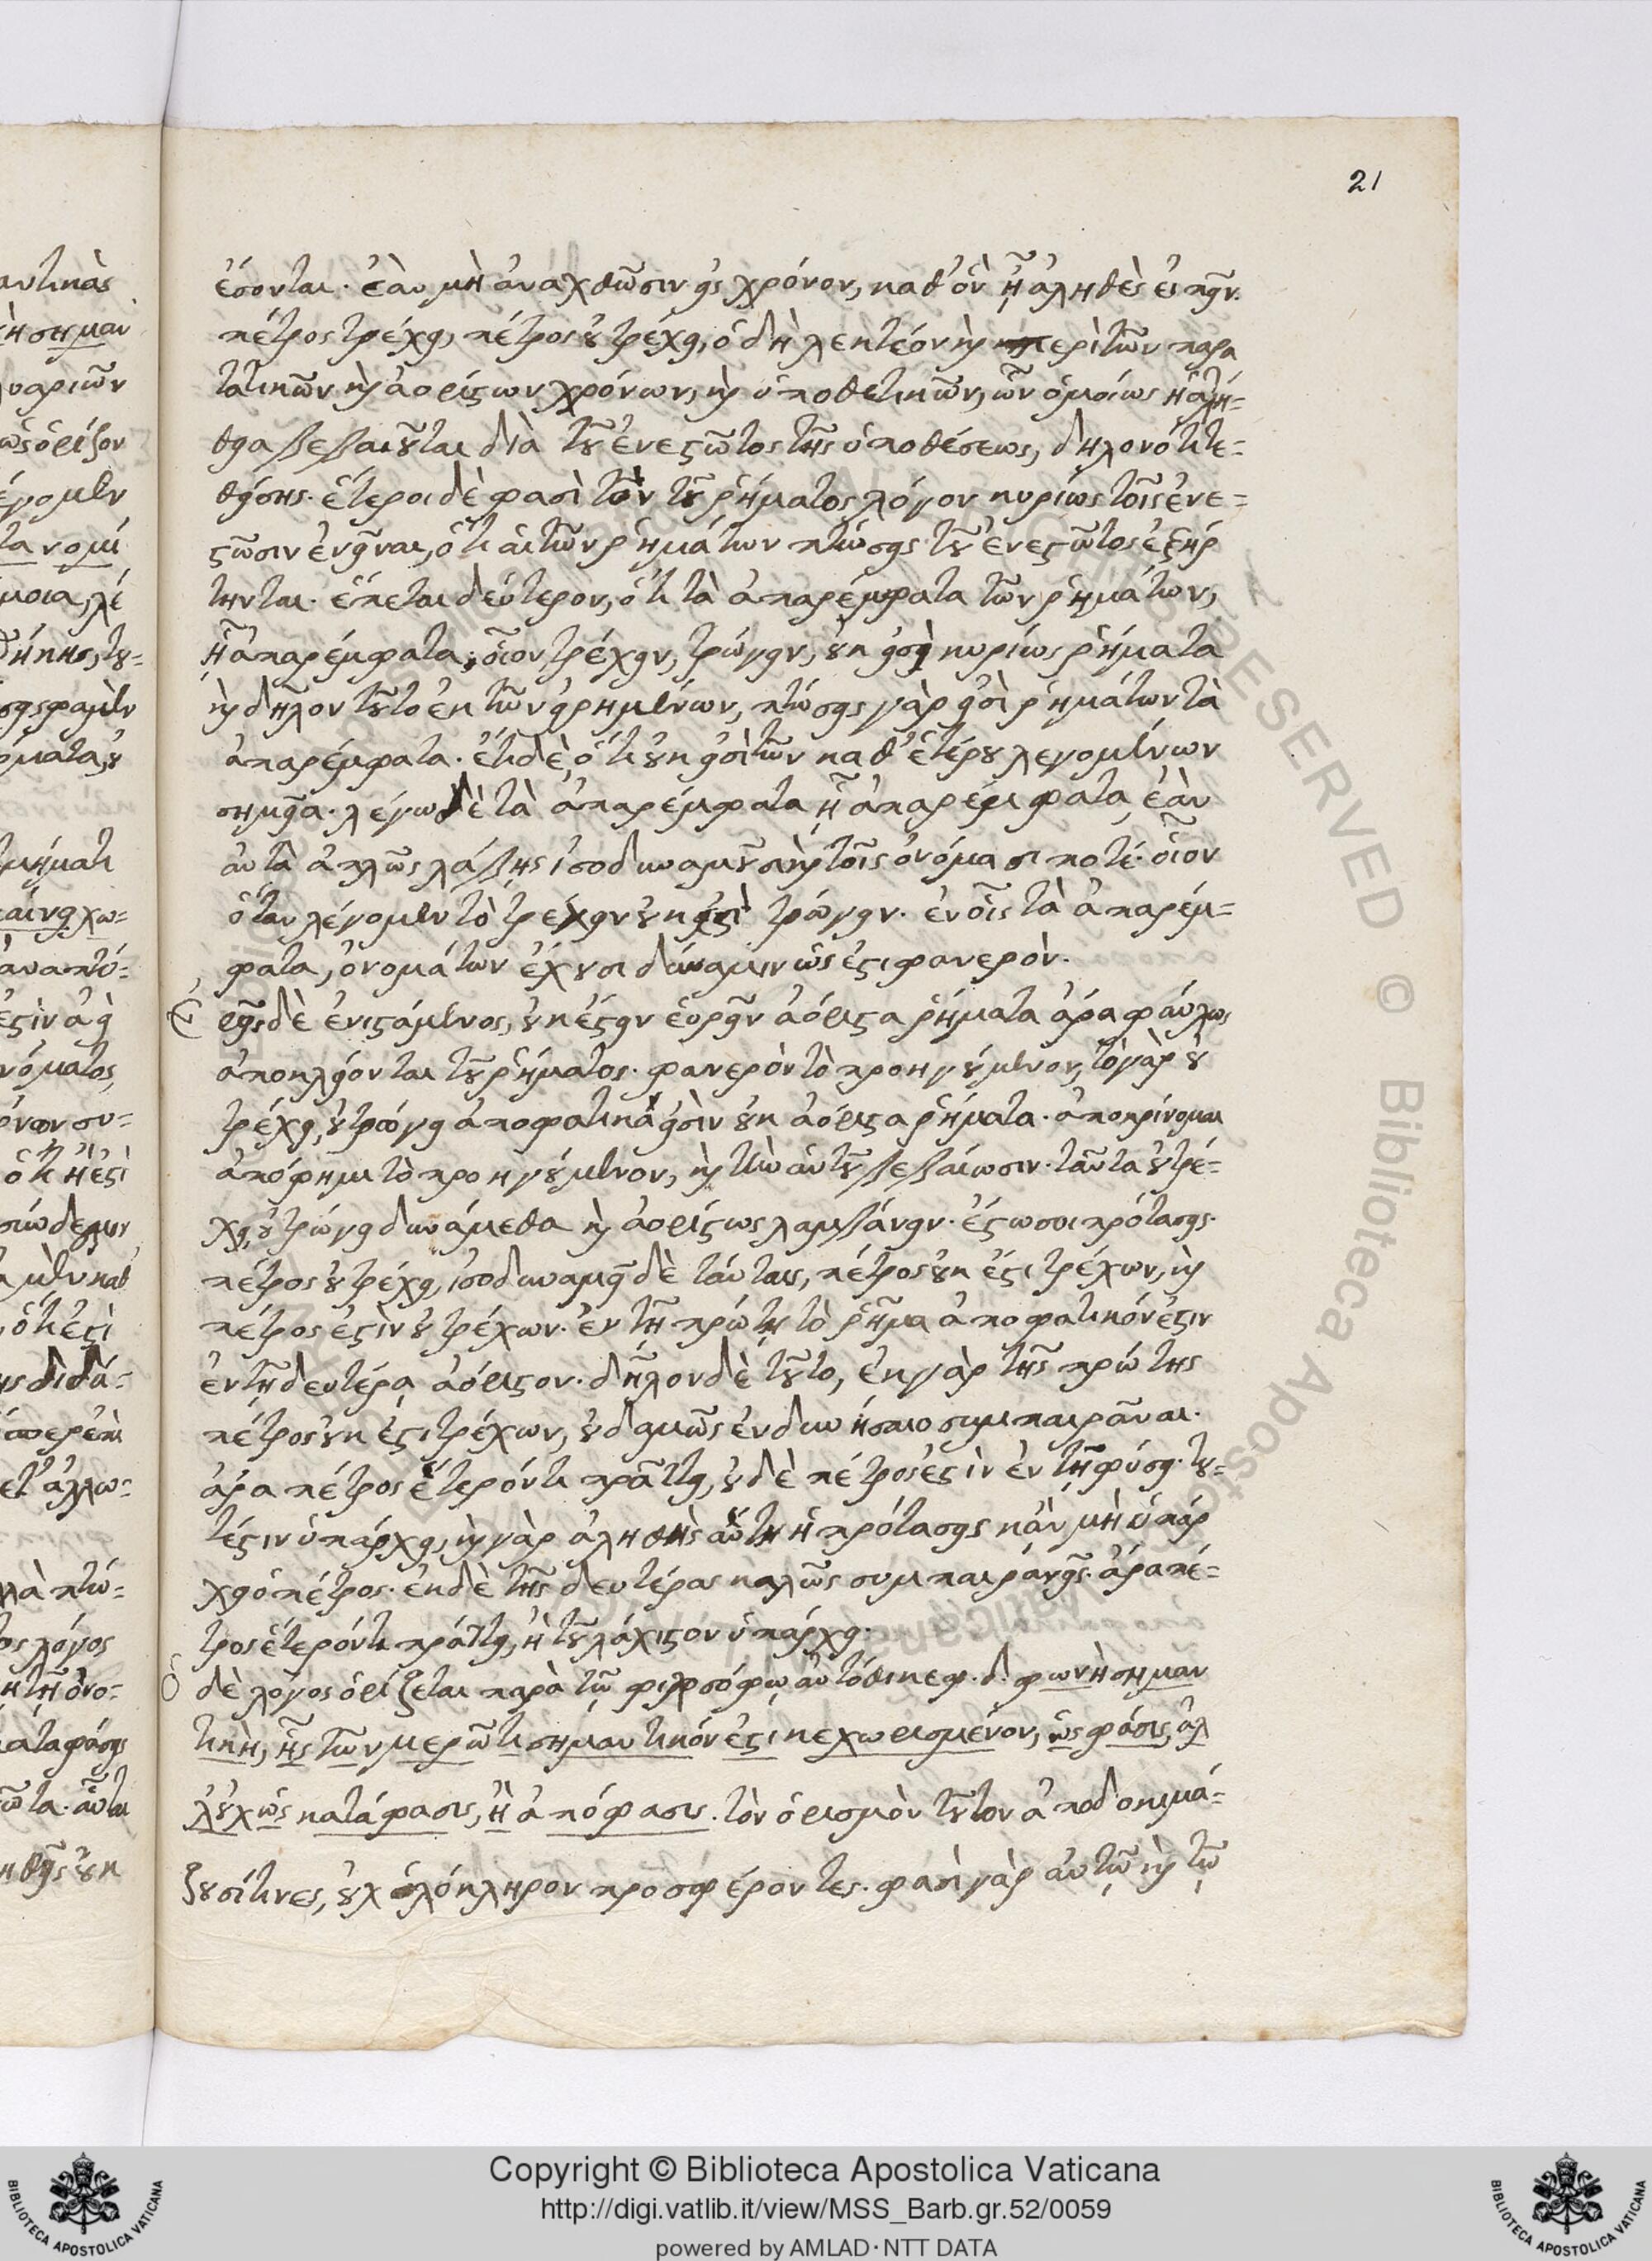 21
ἔσονται. ἐὰν μὴ ἀναχθῶσιν εἰς χρόνον, καθ' ὃν ᾖ ἀληθὲς εἰπεῖν.
πέτρος τρέχει, πέτρος οὐ τρέχει, ὃ δὴ λεκτέον καὶ περὶ τῶν παρα
τατικῶν καὶ ἀορίστων χρόνων, καὶ ὑποθετικῶν, ὧν ὁμοίως ἡ ἀλή-
θεια βεβαιοῦται διὰ τοῦ ἐνεστῶτος τῆς ὑποθέσεως, δηλονότι τε-
θείσης. ἕτεροι δὲ φασὶ τὸν τοῦ ῥήματος λόγον κυρίως τοῖς ἐνε-
στῶσιν ἐνεῖναι, ὅτι αἱ τῶν ῥημάτων πτώσεις τοῦ ἐνεστῶτος ἐξήρ
τηνται. ἕπεται δεύτερον, ὅτι τὰ ἀπαρέμφατα τῶν ῥημάτων,
ᾗ ἀπαρέμφατα, οἷον τρέχειν, τρώγειν, οὐκ εἰσὶ κυρίως ῥήματα
καὶ δῆλον τοῦτο ἐκ τῶν εἰρημένων, πτώσεις γὰρ εἰσὶ ῥημάτων τὰ
ἀπαρέμφατα. ἔτι δὲ, ὅτι οὐκ εἰσὶ τῶν καθ' ἑτέρου λεγομένων
σημεῖα. λέγω δὲ τὰ ἀπαρέμφατα ᾗ ἀπαρέμφατα, ἐὰν
αὐτὰ ἁπλῶς λάβῃς ἰσοδυναμοῦσι καὶ τοῖς ὀνόμασι ποτέ. οἷον
ὅταν λέγομεν τὸ τρέχειν οὐκ ἐστὶ τρώγειν. ἐν οἷς τὰ ἀπαρέμ-
φατα, ὀνομάτων ἔχουσι δύναμιν ὥς ἐστι φανερόν.
Ἐρεῖς δὲ ἐνιστάμενος, οὐκ ἔστιν εὑρεῖν ἀόριστα ῥήματα ἄρα φαύλως
ἀποκλείονται τοῦ ῥήματος. φανερὸν τὸ προηγούμενον, τὸ γὰρ οὐ
τρέχει, οὐ τρώγει ἀποφατικά εἰσιν οὐκ ἀόριστα ῥήματα. ἀποκρίνομαι
ἀπόφημι τὸ προηγούμενον, καὶ τὴν αὐτοῦ βεβαίωσιν. ταῦτα οὐ τρέ-
χει, οὐ τρώγει δυνάμεθα καὶ ἀορίστως λαμβάνειν. ἔστωσοι προτάσεις.
πέτρος οὐ τρέχει, ἰσοδυναμεῖ δὲ ταύταις, πέτρος οὐκ ἔστι τρέχων, καὶ
πέτρος ἐστὶν οὐ τρέχων. ἐν τῇ πρώτῃ τὸ ῥῆμα ἀποφατικόν ἐστιν
ἐν τῇ δευτέρᾳ ἀόριστον. δῆλον δὲ τοῦτο, ἐκ γὰρ τῆς πρώτης
πέτρος οὐκ ἔστι τρέχων, οὐδαμῶς ἐνδυνήσαιο συμπαιρᾶναι.
ἄρα πέτρος ἕτερόν τι πράττει, οὐδὲ πέτρος ἐστὶν ἐν τῇ φύσει. του-
τέστιν ὑπάρχει, καὶ γὰρ ἀληθὴς αὕτη ἡ πρότασις κἂν μὴ ὑπάρ
χει ὁ πέτρος. ἐκ δὲ τῆς δευτέρας καλῶς συμπαιράνεῖς. ἄρα πέ-
τρος ἕτερόν τι πράττει, ἢ τοὐλάχιστον ὑπάρχει.
Ὁ δὲ λόγος ὁρίζεται παρὰ τῷ φιλοσόφῳ αὐτόθι κεφ. δ. φωνὴ σημαν
τικὴ, ἧς τῶν μερῶν τι σημαντικόν ἐστι κεχωρισμένον, ὡς φάσις, ἀλ
λ' οὐχ ὡς κατάφασις, ἢ ἀπόφασις. τὸν ὁρισμὸν τοῦτον ἀποδοκιμά-
ζουσί τινες, οὐχ ὁλόκληρον προσφέροντες. φασὶ γὰρ αὐτῷ καὶ τῷ
Copyright © Biblioteca Apostolica Vaticana
http://digi.vatlib.it/view/MSS_Barb.gr.52/0059
powered by AMLAD·NTT DATA